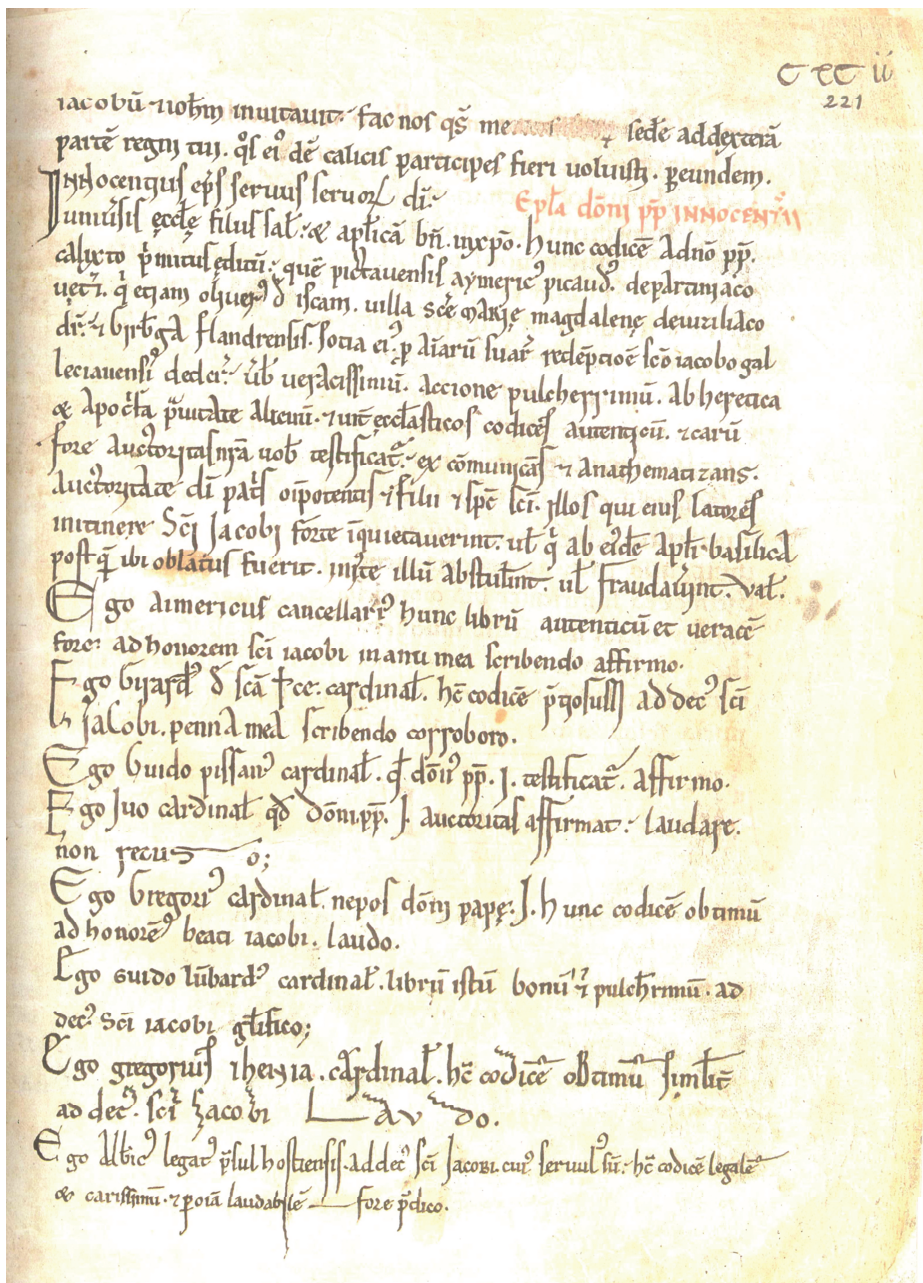 CXCII
221
iacobū & ioh̄m inuitauit. fac nos q̄s me sedē ad dexterā
partē regni tui. q°s ei° dē calicis participes fieri voluisti. p eundem.
Epl̄a dōni pp̄ INNOCENTII
INNocentius ep̄s servus servoꝝ dī.
uniuersis ęccl̄ę filiis sal̄. & apl̄icā bn̄. inxp̄o. hunc codicē Adnō pp̄.
calixto p̄mitus ęditū. quē pictavensis aymeric° picaud°. de partiniaco
vetr̄i. q̄ etiam oliuer° d̄ iscam. uilla scē MARię magdalenę de uiziliaco
dr̄. & Girb̄gA flandrensis. socia ei°. p aīarū suar̄ redēptiōē scō iacobo gal
leciavensi dedēr̄. ūb ueracissimū. Accione pulcherrimū. Ab heretica
& Apocr̄fa p̄uitate Alienū. & int̄ ęccl̄asticos codices autenticū. & carū
fore Auctoritas nr̄a uob̄ testificat̄. ex cōmunicās & Anathematizans.
Auctoritate dī pat̄s oīpotentis & filii & sp̄c scī. illos qui eius latores
initinere Scī Jacobi forte īquietauerint. ul̄ q̄ ab ei°dē Apl̄i basilicA
post q̄ ibi oblatus fuerit. iniste illū Abstul̄int. ul̄ fraudav̄int. val̄.
Ego Aimericus cancellari° hunc librū autenticū et veracē
fore: ad honorem scī iacobi manu mea scribendo affirmo.
Ego Girard° d̄ scā †ce. cardinal̄. hc̄ codicē p̄tiosu ad dec° scī
Jacobi. penna meA scribendo corroboro.
Ego Guido pissan° cardinal̄. qd̄ dōn° pp̄. J. testificat̄. affirmo.
Ego Juo cardinal̄ qd̄ Dōni pp̄. J. auctoritas affirmat. laudare.
non recuso;
Ego Gregori° cardinal̄. nepos dōni papę. J. hunc codicē obtimū
ad honorē beati iacobi. laudo.
Ego Guido lūbard° cardinal̄. librū istū bonū & pulch̄rimū. ad
dec° Scī iacobi gl̄ifico;
Ego gregorius ihenia. cardinal̄. hc̄ codicē obtimū similit̄
ad dec°. scī Jacobi Laudo.
Ego Alb̄ic° legat° p̄sul hostiensis. ad dec° scī Jacobi. cui° servul° sū. hc̄ codicē legalē
& carissimū. & p oīa laudabilē fore p̄dico.